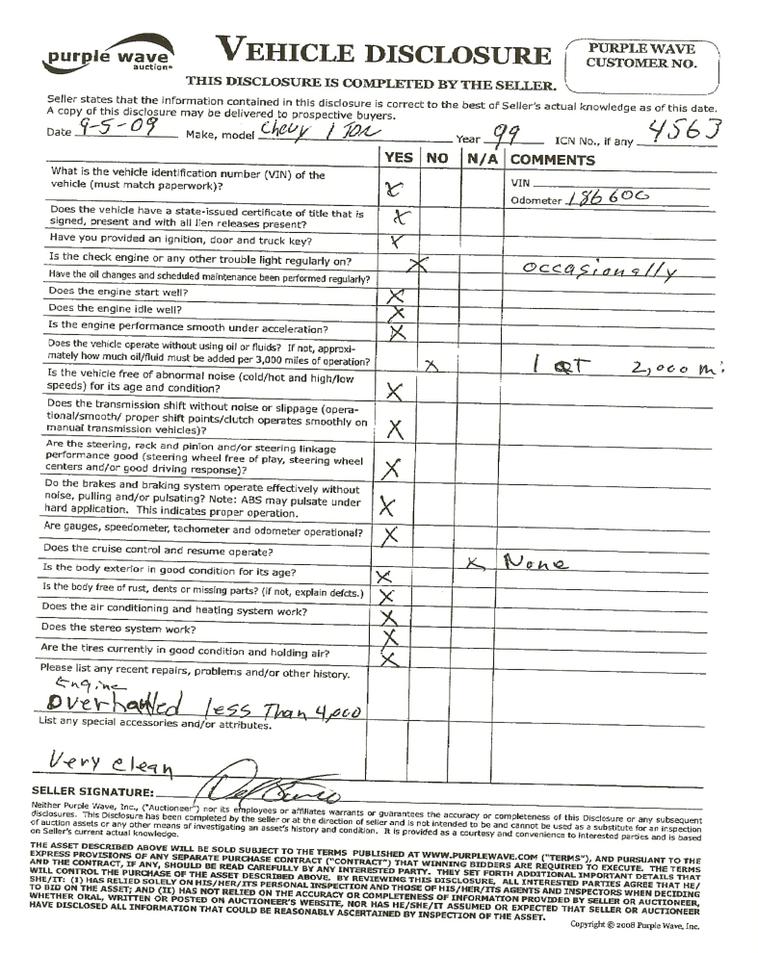 purple wave
auction®
VEHICLE DISCLOSURE
PURPLE WAVE
CUSTOMER NO.
THIS DISCLOSURE IS COMPLETED BY THE SELLER.
Seller states that the information contained in this disclosure is correct to the best of Seller's actual knowledge as of this date.
A copy of this disclosure may be delivered to prospective buyers.
Date 9-5-09 Make, model Chevy 1 Ton Year 99 ICN No., if any 4563
YES NO N/A COMMENTS
What is the vehicle identification number (VIN) of the
vehicle (must match paperwork)? X VIN
Odometer 186600
Does the vehicle have a state-issued certificate of title that is
signed, present and with all lien releases present? X
Have you provided an ignition, door and truck key? X
Is the check engine or any other trouble light regularly on? X occasionally
Have the oil changes and scheduled maintenance been performed regularly?
Does the engine start well? X
Does the engine idle well? X
Is the engine performance smooth under acceleration? X
Does the vehicle operate without using oil or fluids? If not, approxi-
mately how much oil/fluid must be added per 3,000 miles of operation? X 1 QT 2,000 mi
Is the vehicle free of abnormal noise (cold/hot and high/low
speeds) for its age and condition? X
Does the transmission shift without noise or slippage (opera-
tional/smooth/ proper shift points/clutch operates smoothly on
manual transmission vehicles)? X
Are the steering, rack and pinion and/or steering linkage
performance good (steering wheel free of play, steering wheel
centers and/or good driving response)? X
Do the brakes and braking system operate effectively without
noise, pulling and/or pulsating? Note: ABS may pulsate under
hard application. This indicates proper operation. X
Are gauges, speedometer, tachometer and odometer operational? X
Does the cruise control and resume operate? X None
Is the body exterior in good condition for its age? X
Is the body free of rust, dents or missing parts? (if not, explain defcts.) X
Does the air conditioning and heating system work? X
Does the stereo system work? X
Are the tires currently in good condition and holding air? X
Please list any recent repairs, problems and/or other history.
Engine
overhauled less Than 4,000
List any special accessories and/or attributes.
Very clean
SELLER SIGNATURE:
Neither Purple Wave, Inc., ("Auctioneer") nor its employees or affiliates warrants or guarantees the accuracy or completeness of this Disclosure or any subsequent
disclosures. This Disclosure has been completed by the seller or at the direction of seller and is not intended to be and cannot be used as a substitute for an inspection
of auction assets or any other means of investigating an asset's history and condition. It is provided as a courtesy and convenience to interested parties and is based
on Seller's current actual knowledge.
THE ASSET DESCRIBED ABOVE WILL BE SOLD SUBJECT TO THE TERMS PUBLISHED AT WWW.PURPLEWAVE.COM ("TERMS"), AND PURSUANT TO THE
EXPRESS PROVISIONS OF ANY SEPARATE PURCHASE CONTRACT ("CONTRACT") THAT WINNING BIDDERS ARE REQUIRED TO EXECUTE. THE TERMS
AND THE CONTRACT, IF ANY, SHOULD BE READ CAREFULLY BY ANY INTERESTED PARTY. THEY SET FORTH ADDITIONAL IMPORTANT DETAILS THAT
WILL CONTROL THE PURCHASE OF THE ASSET DESCRIBED ABOVE. BY REVIEWING THIS DISCLOSURE, ALL INTERESTED PARTIES AGREE THAT HE/
SHE/IT: (I) HAS RELIED SOLELY ON HIS/HER/ITS PERSONAL INSPECTION AND THOSE OF HIS/HER/ITS AGENTS AND INSPECTORS WHEN DECIDING
TO BID ON THE ASSET; AND (II) HAS NOT RELIED ON THE ACCURACY OR COMPLETENESS OF INFORMATION PROVIDED BY SELLER OR AUCTIONEER,
WHETHER ORAL, WRITTEN OR POSTED ON AUCTIONEER'S WEBSITE, NOR HAS HE/SHE/IT ASSUMED OR EXPECTED THAT SELLER OR AUCTIONEER
HAVE DISCLOSED ALL INFORMATION THAT COULD BE REASONABLY ASCERTAINED BY INSPECTION OF THE ASSET.
Copyright © 2008 Purple Wave, Inc.